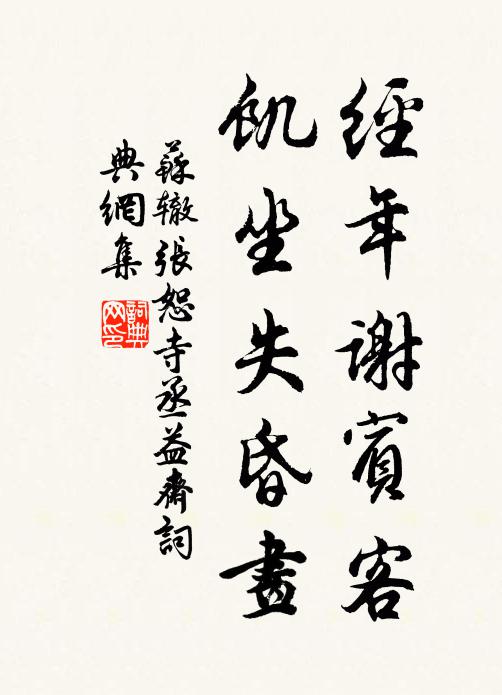 經年謝賓客
飢坐失昏晝
蘇辙張恕寺丞益齋詞
典網集
詞典
网印